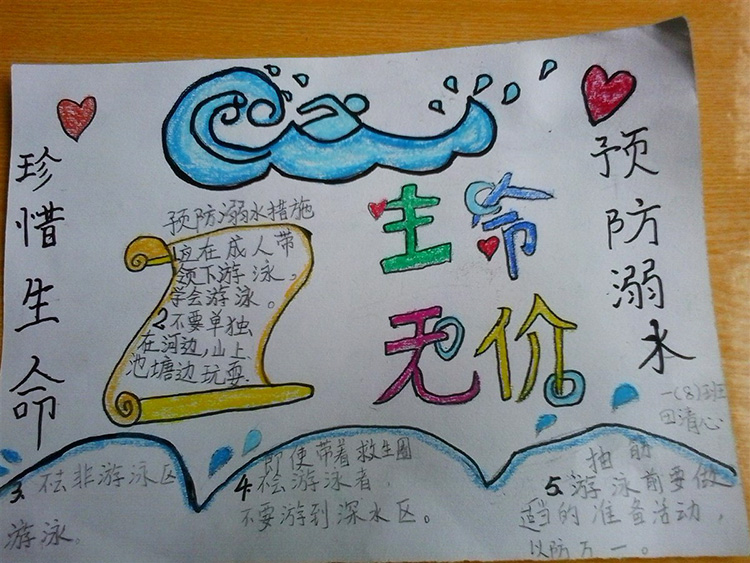 珍惜生命
预防溺水
生命
无价
预防溺水措施
1应在成人带
领下游泳。
学会游泳。
2不要单独
在河边,山上
池塘边玩耍.
一(8)班
田清心
3.不去非游泳区
游泳。
即使带着救生圈
4.不会游泳者,
不要游到深水区。
抽 的
5.游泳前要做
适当的准备活动,
以防万一。